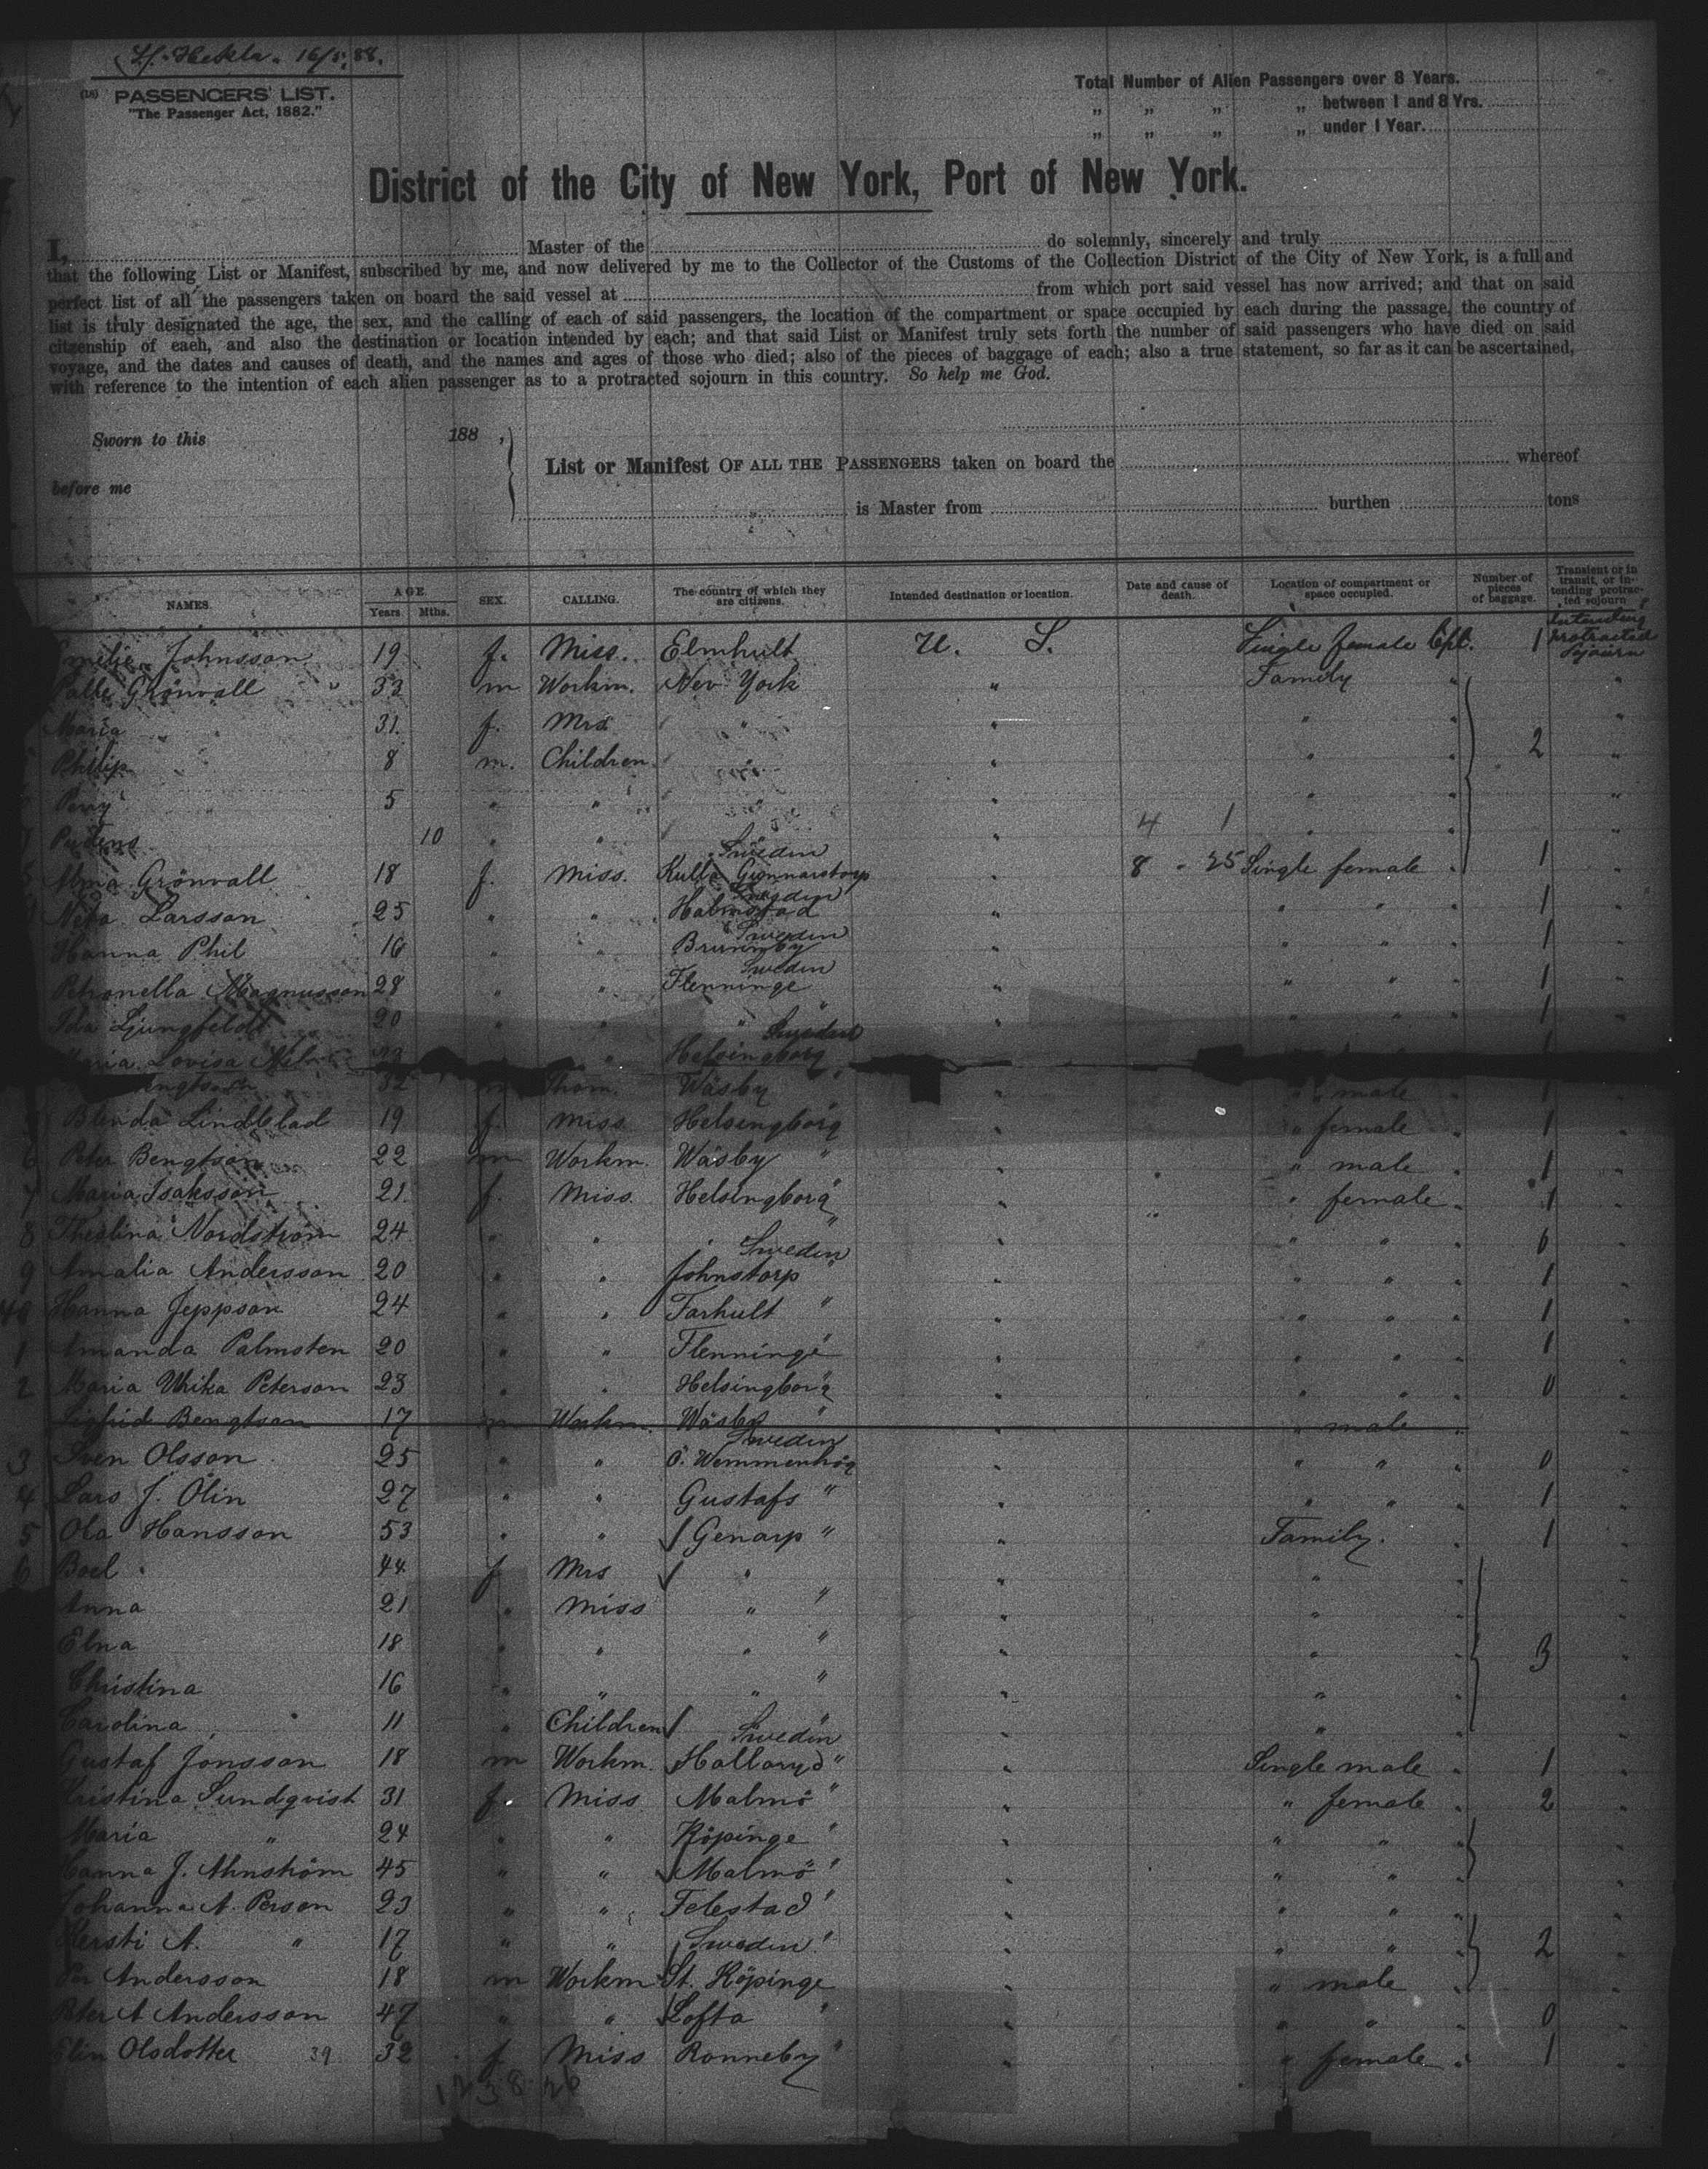 Hekla. 16/5. 88.
PASSENGERS' LIST.
"The Passenger Act, 1882."
Total Number of Alien Passengers over 8 Years.
" " " " between 1 and 8 Yrs.
" " " " under 1 Year.
District of the City of New York, Port of New York.
I, Master of the do solemnly, sincerely and truly
that the following List or Manifest, subscribed by me, and now delivered by me to the Collector of the Customs of the Collection District of the City of New York, is a full and
perfect list of all the passengers taken on board the said vessel at from which port said vessel has now arrived; and that on said
list is truly designated the age, the sex, and the calling of each of said passengers, the location of the compartment or space occupied by each during the passage, the country of
citizenship of each, and also the destination or location intended by each; and that said List or Manifest truly sets forth the number of said passengers who have died on said
voyage, and the dates and causes of death, and the names and ages of those who died; also of the pieces of baggage of each; also a true statement, so far as it can be ascertained,
with reference to the intention of each alien passenger as to a protracted sojourn in this country. So help me God.
Sworn to this 188 ,
before me
List or Manifest OF ALL THE PASSENGERS taken on board the whereof
is Master from burthen tons
NAMES. AGE. Years Mths. SEX. CALLING. The country of which they are citizens. Intended destination or location. Date and cause of death. Location of compartment or space occupied. Number of pieces of baggage. Transient or in transit, or intending protracted sojourn
Johnsson 19 f. Miss. Elmhult U. S. Single female Cpt. 1 Intending protracted sojourn
Grönvall 33 m Workm. Nev York " Family " "
Maria " 31. f. Mrs " " " " "
Philip 8 m. Children " " " " 2 "
5 " " " " " " "
10 " " " 4 1 " "
Grönvall 18 f. Miss. Sweden Kulla Gunnarstorp " 8 - 25 Single female " 1
Larsson 25 " " Sweden Halmstad " " " 1
Hanna Phil 16 " " Sweden Brunnby " " " 1
Petronella Magnusson 28 " " Sweden Flenninge " " " 1
Ida Ljungfeldt 20 " " " " " " " 1
Maria Lovisa Sweden Helsingborg
32 m Wäsby " " male 1
Blenda Lindblad 19 f. Miss Helsingborg " " " female " 1
6 Peter Bengtson 22 m Workm. Wäsby " " " male " 1
7 Maria Isaksson 21. f. Miss. Helsingborg " " " female " 1
8 Nordström 24 " " " " " " " 6
9 Amalia Andersson 20 " " Sweden Johnstorp " " " 1
40 Hanna Jeppson 24 " " Farhult " " " " 1
1 Amanda Palmsten 20 " " Flenninge " " " " 1
2 Maria Ulrika Peterson 23 " " Helsingborg " " " " 0
Sigfrid Bengtson 17 m Workm. Wäsby " " " male "
3 Sven Olsson 25 " " Sweden Ö. Wemmenhög " " " 0
4 Lars J. Ölin 27 " " Gustafs " " " " 1
5 Ola Hansson 53 " " Genarp " " Family. " 1
6 Boel " 44 f Mrs " " " "
Anna 21 " Miss " " " " "
Elna 18 " " " " " " " 3
Christina 16 " " " " " " "
Carolina " 11 " Children " " " "
Gustaf Jonsson 18 m Workm. Sweden Hallaryd " " Single male " 1
Kristina Sundqvist 31 f. Miss Malmö " " " female " 2
Maria " 24 " " Köpinge " " " "
Hanna J. Ahnström 45 " " Malmö " " " "
Johanna A. Person 23 " " Felestad " " " "
Kersti A. " 17 " " Sweden " " " " 2
Per Andersson 18 m Workm St. Köpinge " male
Peter A Andersson 47 " " Lofta " " " " 0
Elin Olsdotter 39 32 f Miss Ronneby " " " female " 1